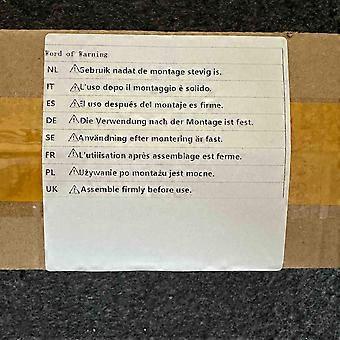 Word of Warning
NL ⚠Gebruik nadat de montage stevig is.
IT ⚠L'uso dopo il montaggio è solido.
ES ⚠El uso después del montaje es firme.
DE ⚠Die Verwendung nach der Montage ist fest.
SE ⚠Användning efter montering är fast.
FR ⚠L'utilisation après assemblage est ferme.
PL ⚠Używanie po montażu jest mocne.
UK ⚠Assemble firmly before use.